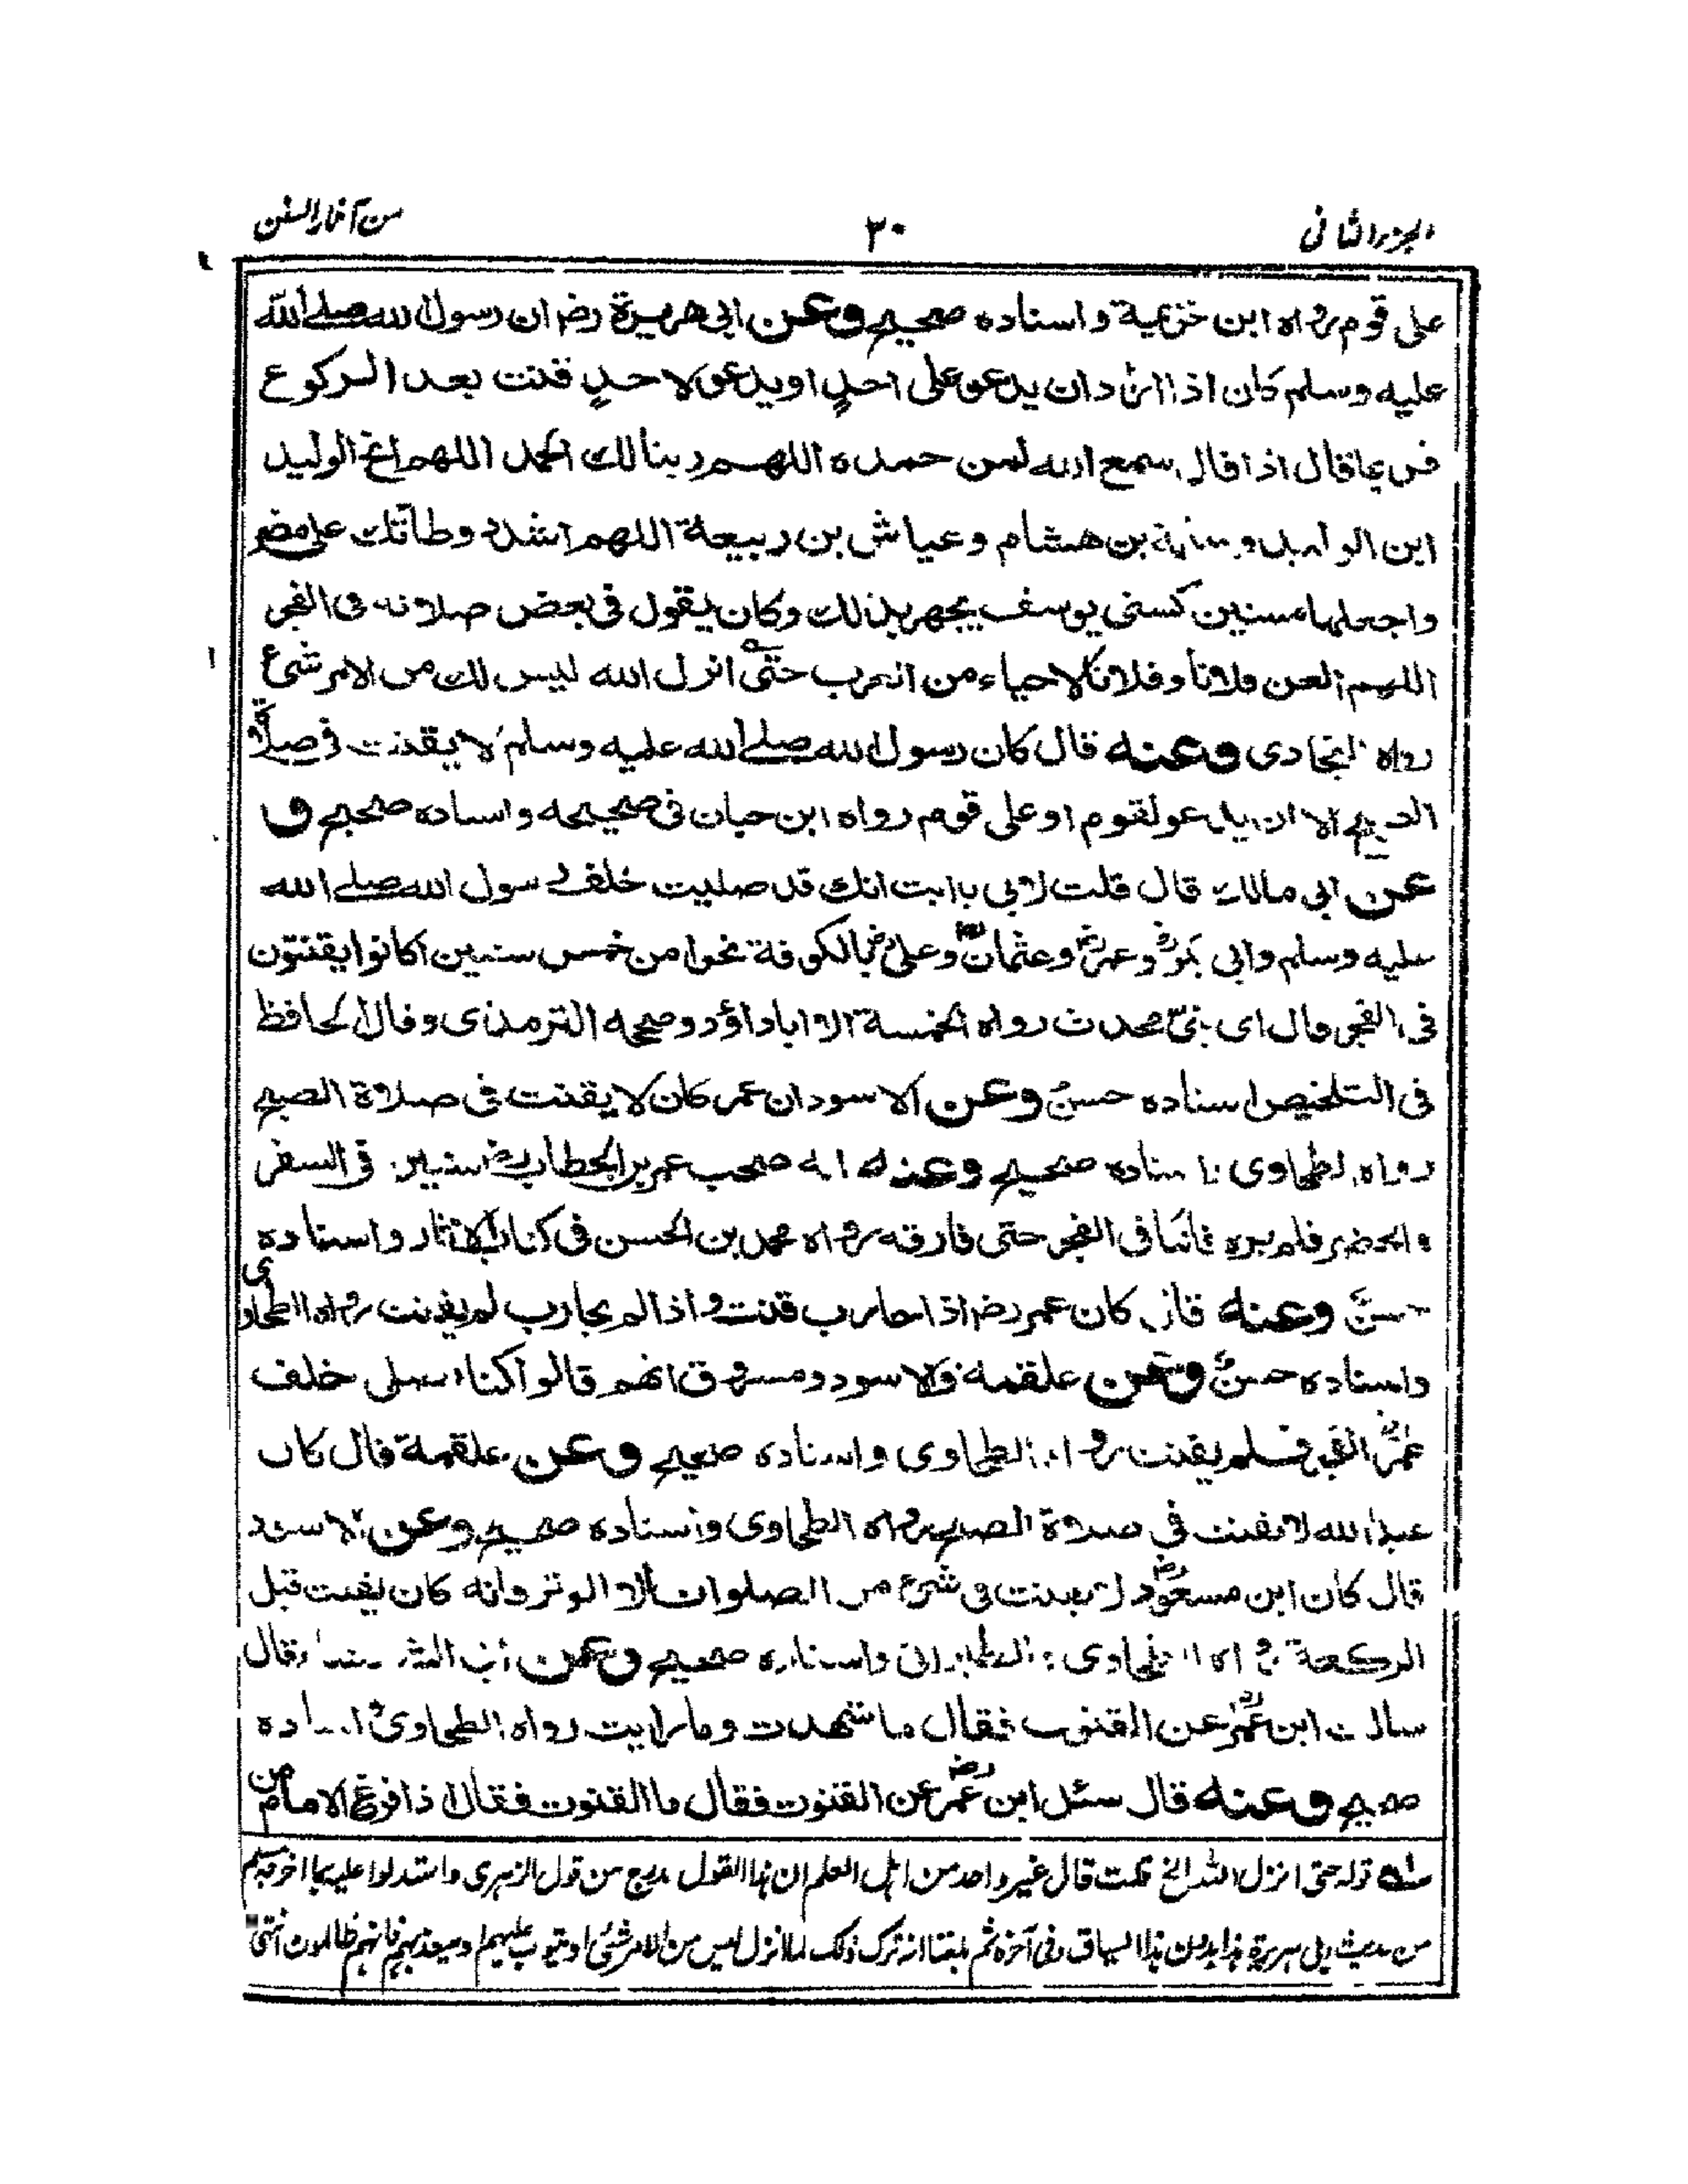 الجزء الثانی
۳۰
من آثار السنن
علی قوم رواه ابن خزيمة واسناده صحيح وعن ابی هريرة رض ان رسول الله صلے الله
عليه وسلم كان اذا اراد ان يدعو علی احدٍ او يدعو لاحدٍ قنت بعد الركوع
فربما قال اذا قال سمع الله لمن حمده اللهم ربنا لك الحمد اللهم انج الوليد
ابن الوليد وسلمة بن هشام وعياش بن ربيعة اللهم اشدد وطأتك علی مضر
واجعلها سنين كسنی يوسف يجهر بذلك وكان يقول فی بعض صلاته فی الفجر
اللهم العن فلانا وفلانا لاحياء من العرب حتی انزل الله ليس لك من الامر شیء
رواه البخاری وعنه قال كان رسول الله صلے الله عليه وسلم لا يقنت فی صلاة
الصبح الا ان يدعو لقوم او علی قوم رواه ابن حبان فی صحيحه واسناده صحيح و
عن ابی مالك قال قلت لابی يا ابت انك قد صليت خلف رسول الله صلے الله
عليه وسلم وابی بكر رض وعمر رض وعثمان رض وعلی رض بالكوفة نحوا من خمس سنين اكانوا يقنتون
فی الفجر قال ای بنیّ محدث رواه الخمسة الا اباداؤد وصححه الترمذی وقال الحافظ
فی التلخيص اسناده حسنٌ وعن الاسود ان عمر كان لا يقنت فی صلاة الصبح
رواه الطحاوی باسناده صحيح وعنه انه صحب عمر بن الخطاب رض سنتين فی السفر
والحضر فلم يره قانتا فی الفجر حتی فارقه رواه محمد بن الحسن فی كتاب الاثار واسناده
حسنٌ وعنه قال كان عمر رض اذا حارب قنت واذا لم يحارب لم يقنت رواه الطحاوی
واسناده حسنٌ وعن علقمة والاسود ومسروق انهم قالوا كنا نصلی خلف
عمر رض الفجر فلم يقنت رواه الطحاوی واسناده صحيح وعن علقمة قال كان
عبد الله لا يقنت فی صلاة الصبح رواه الطحاوی واسناده صحيح وعن الاسود
قال كان ابن مسعود رض لا يقنت فی شیء من الصلوات الا الوتر وانه كان يقنت قبل
الركعة رواه الطحاوی والطبرانی واسناده صحيح وعن ابی الشعثاء قال
سالت ابن عمر رض عن القنوت فقال ما شهدت وما رايت رواه الطحاوی واسناده
صحيح وعنه قال سئل ابن عمر رض عن القنوت فقال ما القنوت فقال اذا فرغ الامام من
قوله حتی انزل الله الخ قلت قال غير واحد من اهل العلم ان هذا القول مدرج من قول الزهری واستدلوا عليه بما اخرجه مسلم
من حديث ابی هريرة هذا بدون هذا السياق وفی آخره ثم بلغنا انه ترك ذلك لما نزل ليس من الامر شیء او يتوب عليهم او يعذبهم فانهم ظالمون انتهی